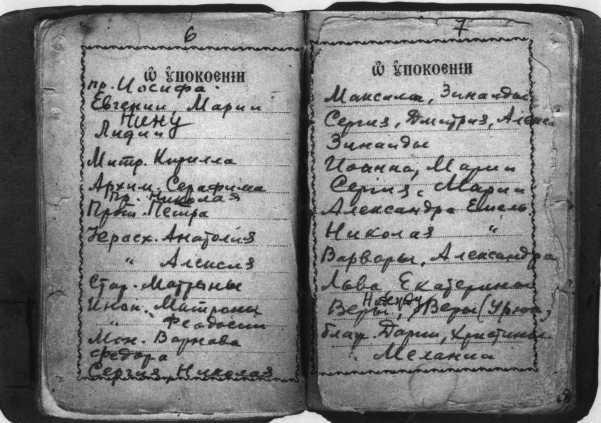 6
Ѡ ᲂУПОКОЕНІИ
пр. Иосифа
Евгении, Марии
Нину
Лидии
Митр. Кирилла
Архим. Серафима
Пр. Николая
Прот. Петра
Иерасх. Анатолия
" Алексия
Стар. Матроны
Инок. Матроны
" Феодосии
Мон. Варнава
Федора
Сергия, Николая
7
Ѡ ᲂУПОКОЕНІИ
Максима, Зинаиды
Сергия, Дмитрия,
Зинаиды
Иоанна, Марии
Сергия, Марии
Александра Емель.
Николая "
Варвары, Александра
Льва Екатерины
Надежду
Веры, Веры
блаж. Дарии, Христины
Мелании